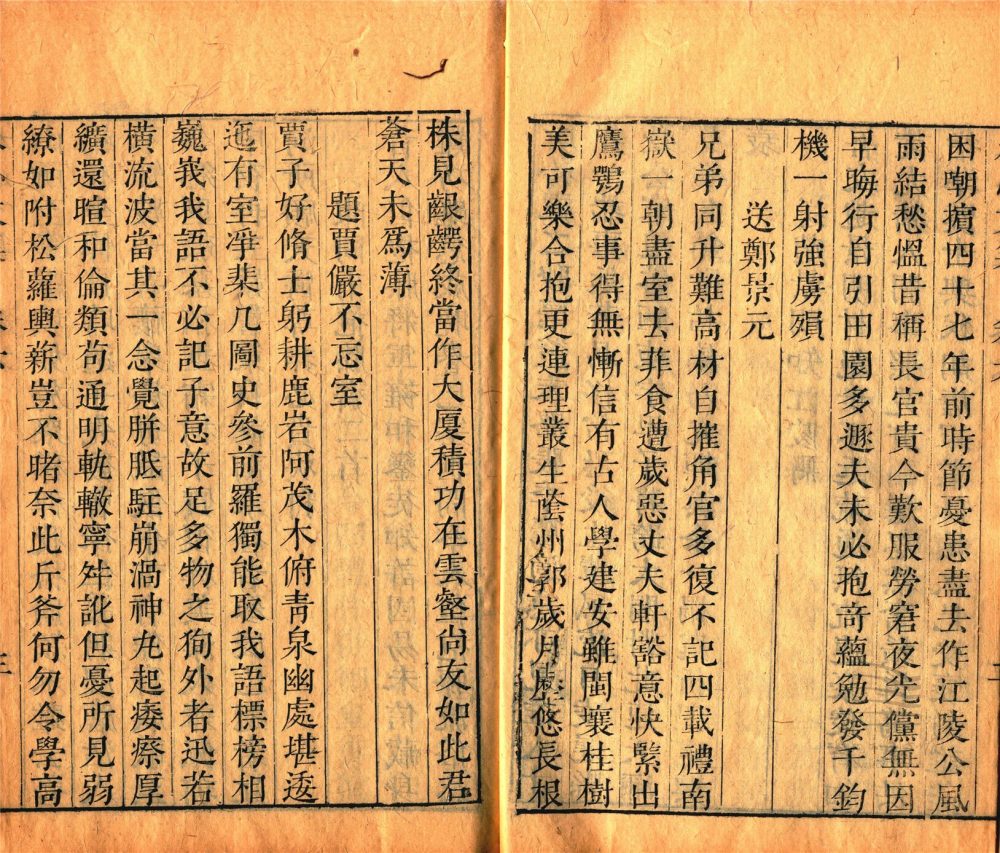 困嘲擯四十七年前時節憂患盡去作江陵公風
雨結愁慍昔稱長官貴今歎服勞窘夜光儻無因
早晦行自引田園多遯夫未必抱竒蘊勉發千鈞
機一射強虜殞
送鄭景元
兄弟同升難高材自摧角官多復不記四載禮南
嶽一朝盡室去菲食遭歲惡丈夫軒豁意快緊出
鷹鶚忍事得無慚信有古人學建安雖閩壤桂樹
美可樂合抱更連理叢生蔭州郭歲月歷悠長根
株見齦齶終當作大厦積功在雲壑尚友如此君
蒼天未爲薄
題賈儼不忘室
賈子好脩士躬耕鹿岩阿茂木俯青泉幽處堪逶
迤有室凈棐几圖史參前羅獨能取我語標榜相
巍峩我語不必記子意故足多物之狥外者迅若
橫流波當其一念覺胼胝駐崩渦神丸起痿瘵厚
纊還暄和倫類苟通明軌轍寧舛訛但憂所見弱
繚如附松蘿輿薪豈不睹奈此斤斧何勿令學高